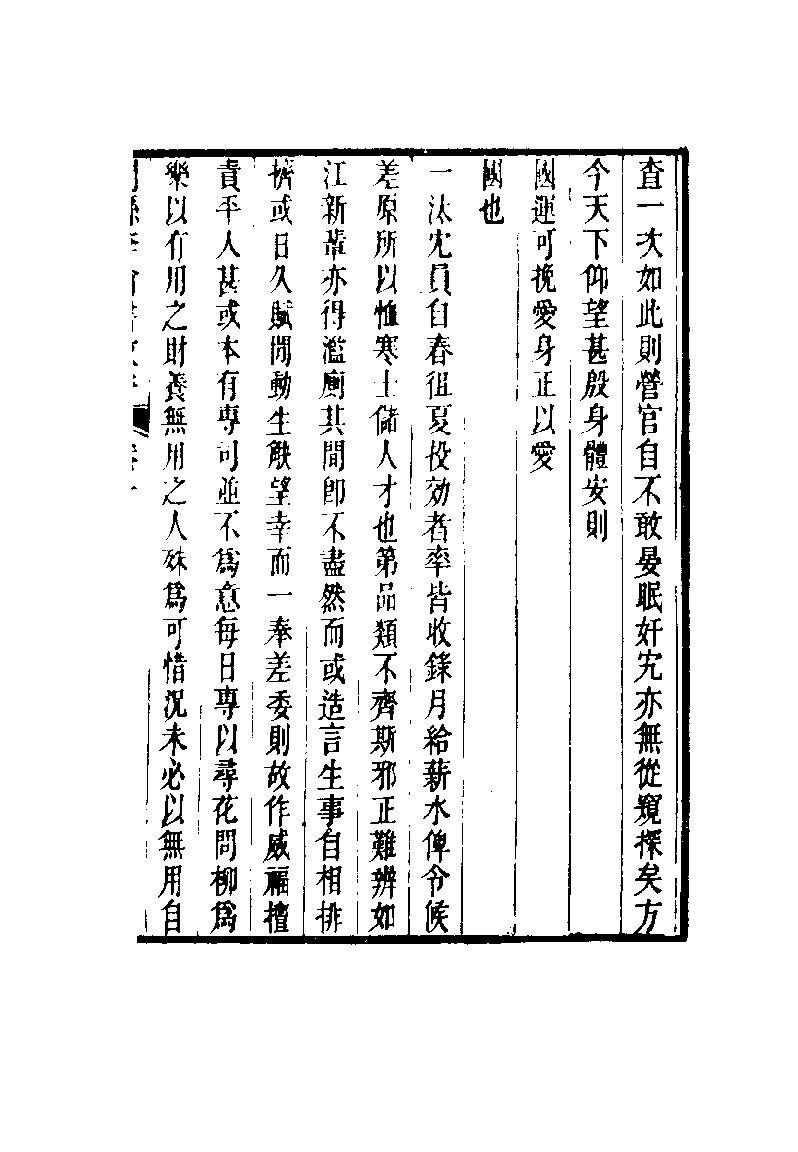 查一次如此則營官自不敢晏眠奸宄亦無從窺探矣方
今天下仰望甚殷身體安則
國運可挽愛身正以愛
國也
一汰宂員自春徂夏投効者率皆收錄月給薪水俾令候
差原所以恤寒士儲人才也第品類不齊斯邪正難辨如
江新輩亦得濫廁其間卽不盡然而或造言生事自相排
擠或日久賦閒動生觖望幸而一奉差委則故作威福擅
責平人甚或本有專司並不爲意每日專以尋花問柳爲
樂以有用之財養無用之人殊爲可惜況未必以無用自